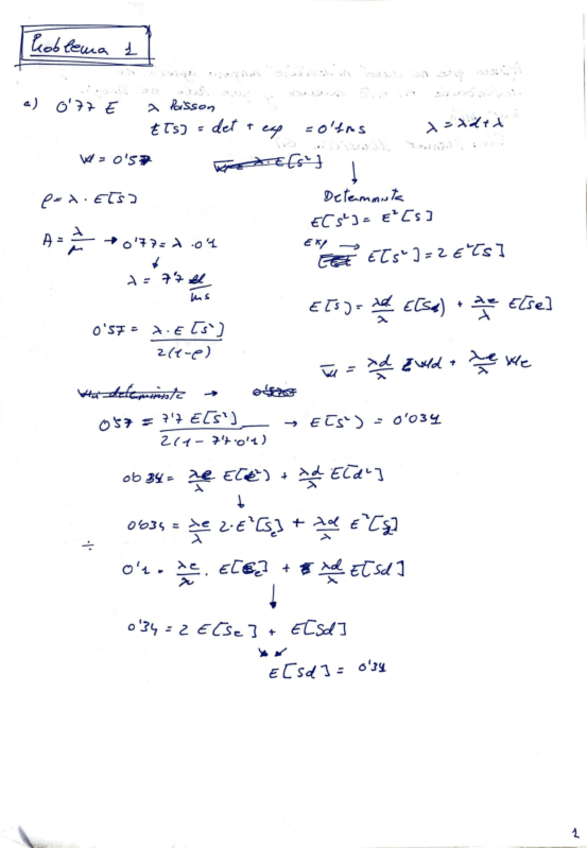 Problema 1
a) 0'77 E λ Poisson
E[S] = det + exp = 0'1 ms λ = λd + λ
W = 0'57
ρ = λ · E[S]
Determinista
E[S²] = E²[S]
A = λ/μ → 0'77 = λ · 0'1
Exp → E[S²] = 2 E²[S]
λ = 7'7 /ms
E[S] = λd/λ E[Sd] + λe/λ E[Se]
0'57 = λ · E[S²] / 2(1-ρ)
W = λd/λ Wd + λe/λ We
0'57 = 7'7 E[S²] / 2(1 - 7'7·0'1) → E[S²] = 0'034
0'034 = λe/λ E[e²] + λd/λ E[d²]
0'034 = λe/λ 2·E²[Se] + λd/λ E²[Sd]
÷
0'1 = λe/λ · E[Se] + λd/λ E[Sd]
0'34 = 2 E[Se] + E[Sd]
E[Sd] = 0'34
1